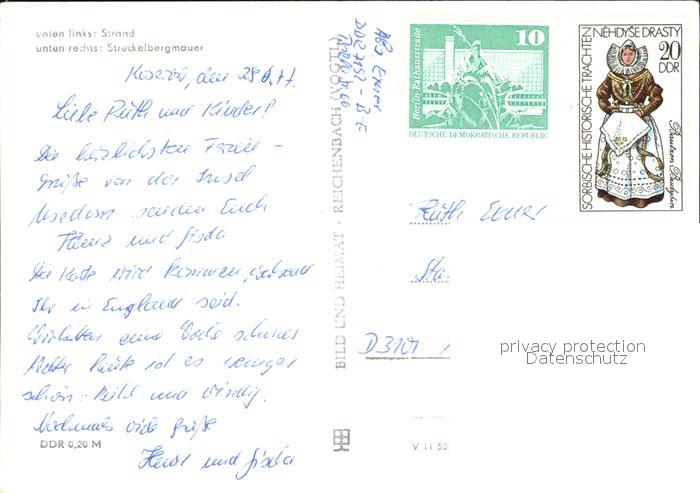 unten links: Strand
unten rechts: Streckelbergmauer
Koserow, den 28.
Liebe Ruth und Kinder!
Die herzlichsten Ferien-
grüße von der Insel
Usedom senden Euch
Heinz und Gisela
Die Karte wird kommen, während
Ihr in England seid.
Wir hatten eine Woche schönes
Wetter heute ist es weniger
schön: kühl und windig.
Nochmals viele Grüße
Heinz und Gisela
DDR 0,20 M
BILD UND HEIMAT · REICHENBACH (VOGTL)
Abs. Exner
10
Berlin, Rathausstraße
DEUTSCHE DEMOKRATISCHE REPUBLIK
SORBISCHE HISTORISCHE TRACHTEN
NĚHDYŠE DRASTY
20
DDR
Bautzen Budyšin
Ruth Exner
D 3101
privacy protection
Datenschutz
V 11 50